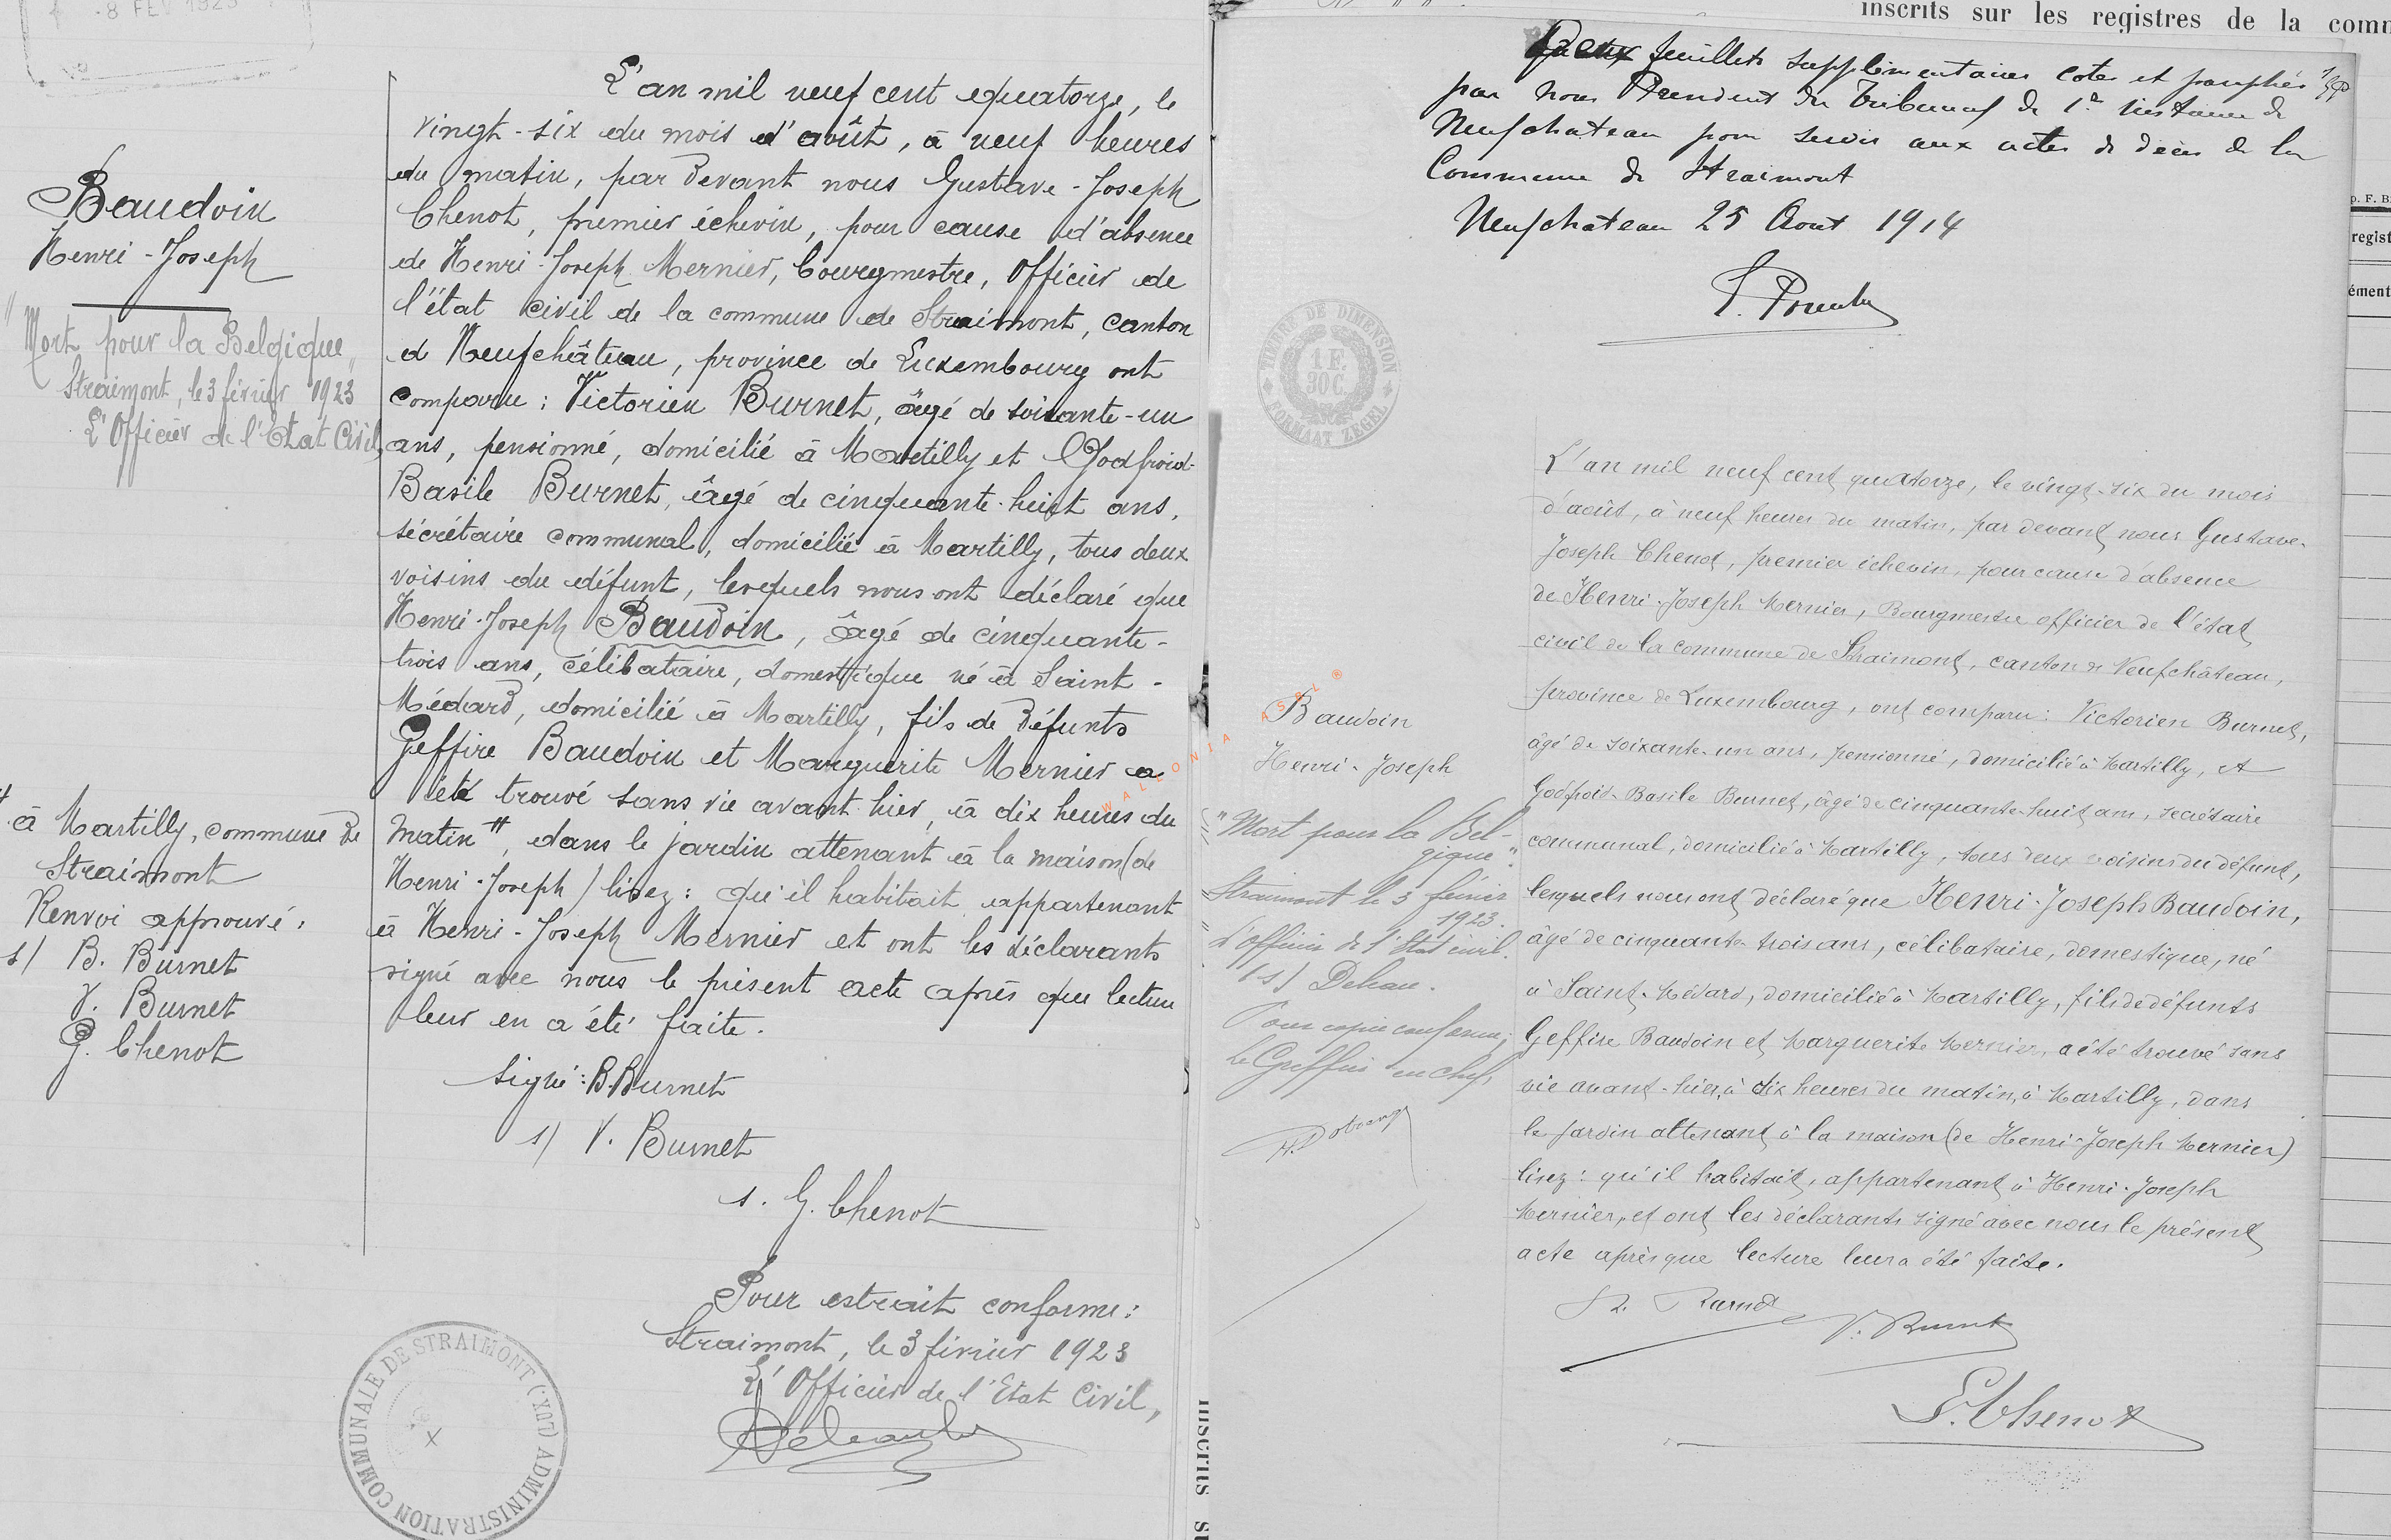 8 FEV 1923
L'an mil neuf cent quatorze, le
vingt-six du mois d'août, à neuf heures
du matin, par devant nous Gustave-Joseph
Chenot, premier échevin, pour cause d'absence
de Henri-Joseph Mernier, bourgmestre, Officier de
l'état civil de la commune de Straimont, canton
d Neufchâteau, province de Luxembourg ont
comparu : Victorien Burnet, âgé de soixante-un
ans, pensionné, domicilié à Martilly et Godfroid-
Basile Burnet, âgé de cinquante-huit ans,
sécrétaire communal, domicilié à Martilly, tous deux
voisins du défunt, lesquels nous ont déclaré que
Henri-Joseph Baudoin, âgé de cinquante-
trois ans, célibataire, domestique né à Saint-
Médard, domicilié à Martilly, fils de défunts
Geffire Baudoin et Marguerite Mernier a
été trouvé sans vie avant hier, à dix heures du
matin #, dans le jardin attenant à la maison (de
Henri-Joseph) lisez : qu'il habitait appartenant
à Henri-Joseph Mernier et ont les déclarants
signé avec nous le présent acte après que lecture
leur en a été faite.
Signé : B. Burnet
s/ V. Burnet
s. G. Chenot
Pour extrait conforme :
Straimont, le 3 février 1923
L'Officier de l'Etat Civil,
Baudoin
Henri-Joseph
"Mort pour la Belgique"
Straimont, le 3 février 1923
L'Officier de l'Etat Civil,
# à Martilly, commune de
Straimont
Renvoi approuvé.
s/ B. Burnet
V. Burnet
G. Chenot
ADMINISTRATION COMMUNALE DE STRAIMONT (LUX.)
inscrits sur les registres de la comm
Deux feuillets supplémentaires cotés et paraphés
par nous Président du Tribunal de 1e instance de
Neufchateau pour servir aux actes de décès de la
Commune de Straimont
Neufchateau 25 Aout 1914
p. F. B
regist
ément
TIMBRE DE DIMENSION
1 F.
30 C.
FORMAAT ZEGEL
L'an mil neuf cent quatorze, le vingt-six du mois
d'août, à neuf heures du matin, par devant nous Gustave-
Joseph Chenot, premier échevin, pour cause d'absence
de Henri-Joseph Mernier, Bourgmestre officier de l'état
civil de la commune de Straimont, canton de Neufchâteau,
province de Luxembourg, ont comparu : Victorien Burnet,
âgé de soixante-un ans, pensionné, domicilié à Martilly, et
Godfroid-Basile Burnet, âgé de cinquante-huit ans, secrétaire
communal, domicilié à Martilly, tous deux voisins du défunt,
lesquels nous ont déclaré que Henri-Joseph Baudoin,
âgé de cinquante-trois ans, célibataire, domestique, né
à Saint-Médard, domicilié à Martilly, fils de défunts
Geffire Baudoin et Marguerite Mernier, a été trouvé sans
vie avant-hier, à dix heures du matin, à Martilly, dans
le jardin attenant à la maison (de Henri-Joseph Mernier)
lisez : qu'il habitait, appartenant à Henri-Joseph
Mernier, et ont les déclarants signé avec nous le présent
acte après que lecture leur a été faite.
B. Burnet
V. Burnet
G. Chenot
Baudoin
Henri-Joseph
"Mort pour la Bel-
gique"
Straimont le 3 février
1923.
L'officier de l'Etat civil.
(s) Dehan.
Pour copie conforme,
Le Greffier en chef,
WALLONIA ASBL ®
inscrits su